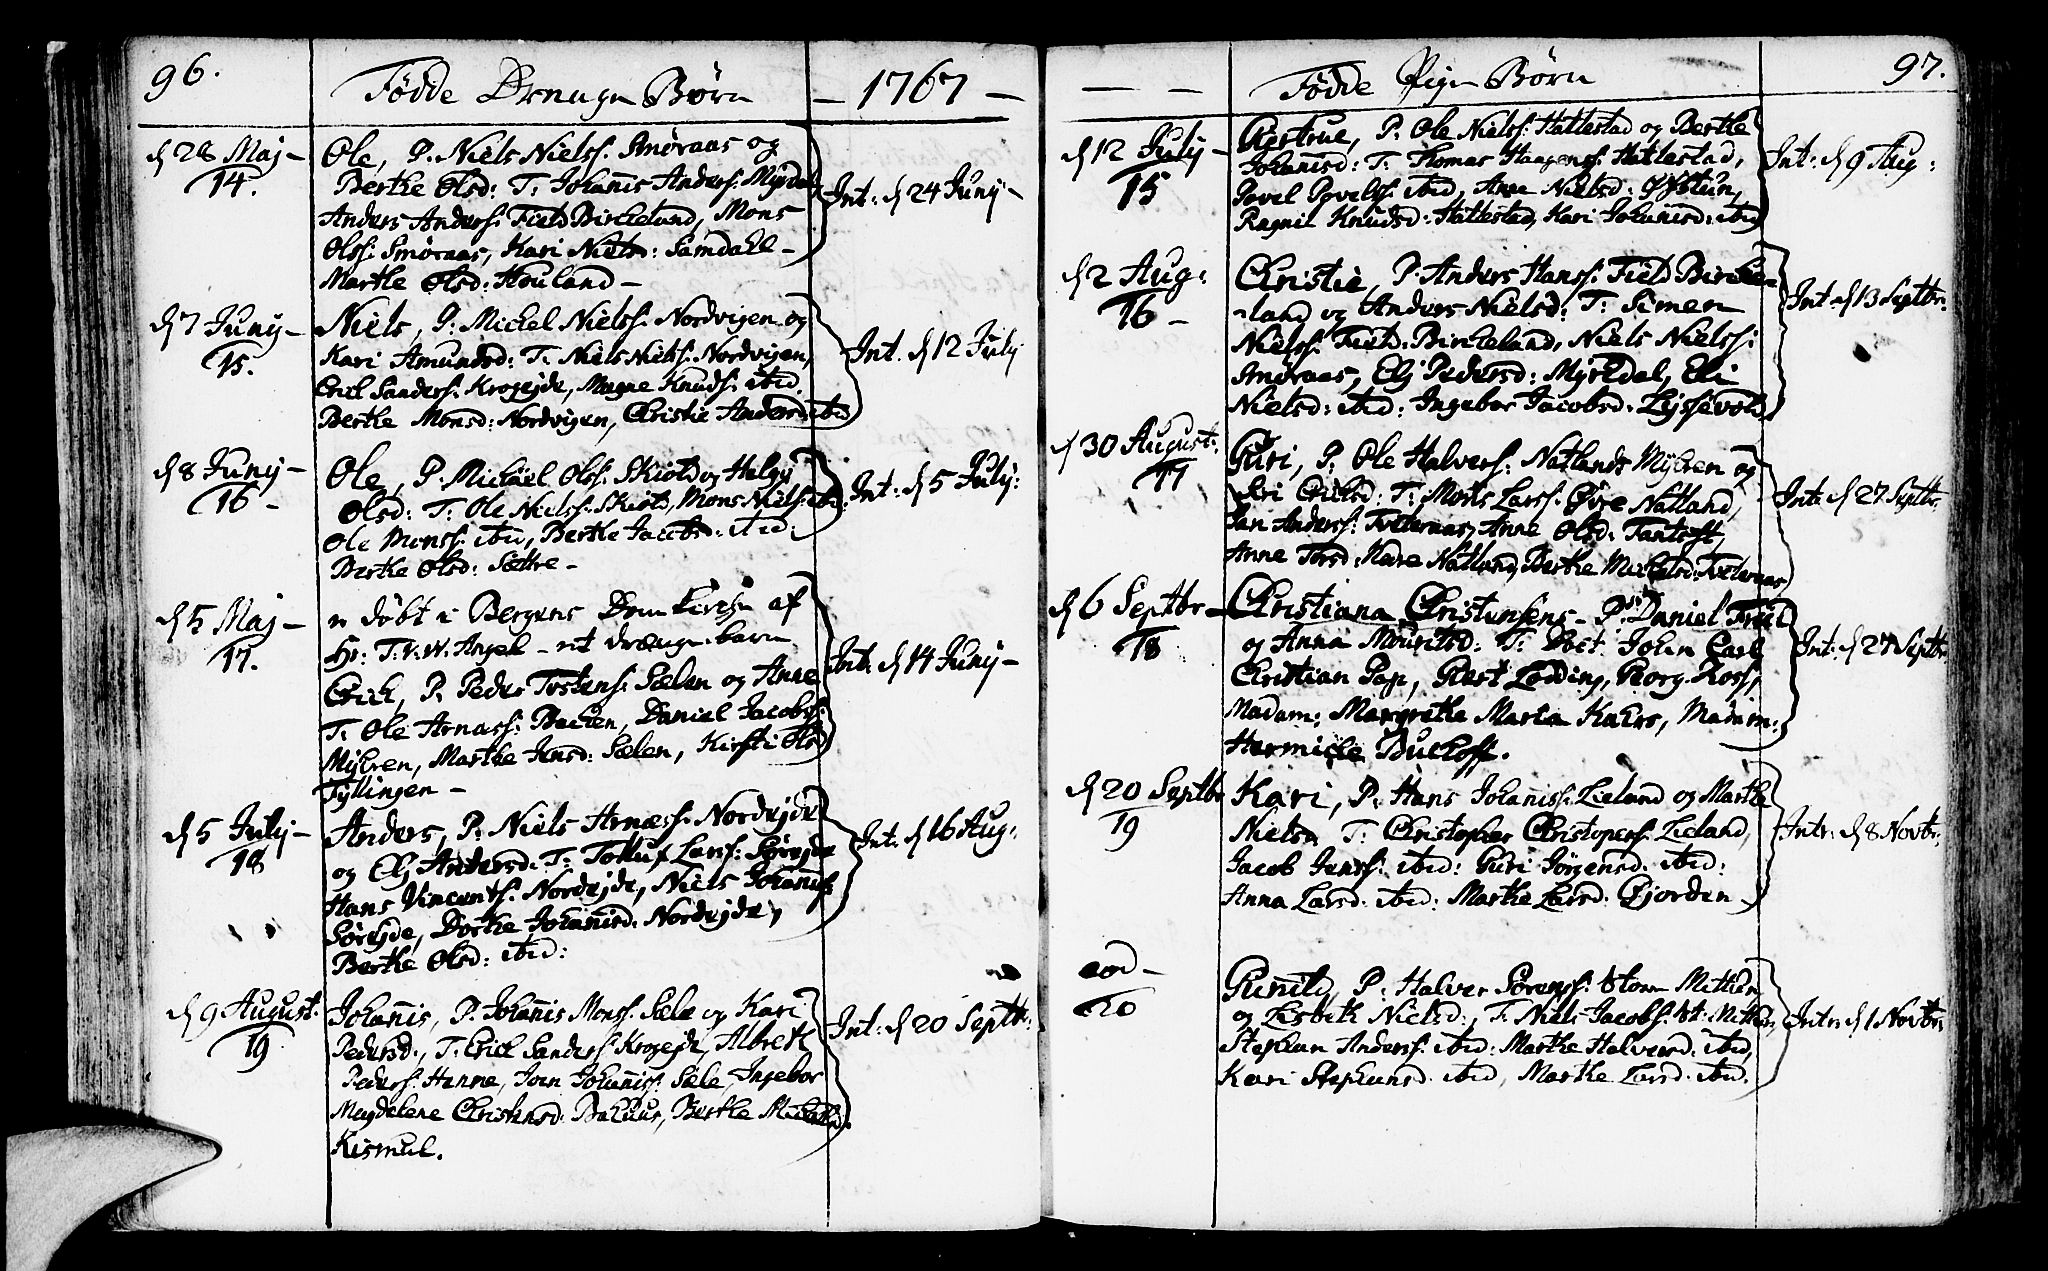 96.
Fødde Drenge Børn
— 1767 —
d 28 Maj —
14.
Ole, P. Niels Nielss: Smøraas og
Berthe Olsd: T: Johannis Anderss: Myrdal,
Anders Anderss: Field Birkeland, Mons
Olss: Smøraas, Kari Nielsd: Samdahl —
Marthe Olsd: Houland —
Int: d 24 Junj —
d 7 Junj —
15.
Niels, P. Mickel Nielss: Nordvigen og
Kari Amundsd: T. Niels Nielss: Nordvigen,
Erick Sanderss: Krogejde, Magne Knudss: ibid,
Berthe Monsd: Nordvigen, Christie Andersd: ibid
Int. d 12 July
d 8 Junj —
16 —
Ole, P. Michael Olss: Skiold og Helgy
Olsd: T: Ole Nielss: Skiold, Mons Nielss: ibid:
Ole Monss: ibid, Berthe Jacobsd: ibid:
Berthe Olsd: Sættre —
Int: d 5 July:
d 5 Maj —
17.
er døbt i Bergens Dom Kirche af
Hr: T. V. W. Angel — et drenge barn
Erick, P. Peder Tostens: Sælen og Anne
T. Ole Arnæss: Backen, Daniel Jacobss:
Myhren, Marthe Jensd: Sælen, Kirsti Olsd
Tyllingen —
Int: d 14 Junj —
d 5 July —
18
Anders, P. Niels Arnæss: Nordejde
og Elj Andersd: T: Tolluf Larss: Sørejde
Hans Vincentss: Nordejde, Niels Johaniss:
Sørejde, Dorthe Johanisd: Nordejde,
Berthe Olsd: ibid:
Int: d 16 Aug:
d 9 August:
19
Johannis, P. Johannis Monss: Sæle og Kari
Pedersd:, T. Erick Sanderss: Krogejde, Albret
Pederss: Hanne, Joen Johanniss: Sæle, Ingebor
Magdelene Christensd: Bahuus, Berthe Michelsd:
Kismul.
Int: d 20 Septbr:
— —
Fødde Pige Børn
97.
d 12 July —
15
Giertrue, P. Ole Nielss: Hattestad og Berthe
Johanisd: T: Thomas Haagenss: Hattestad,
Povel Povelss: ibid, Anne Nielsd: Øfstun,
Ragnil Knudsd: Hattestad, Kari Johanisd: ibid
Int: d 9 Aug:
d 2 Aug:
16 —
Christie, P. Anders Hanss: Field Bircke-
-land og Anders Nielsd: T: Simen
Nielss: Field: Birkeland, Niels Nielss:
Smøraas, Elj Pedersd: Myrhdal, Eli
Nielsd: ibid: Ingebor Jacobsd: Lyssevold
Int: d 13 Septbr:
d 30 August:
17
Guri, P. Ole Halverss: Natlands Myhren og
Siri Ericksd: T: Mons Larss: Øvre Natland,
Jan Anderss: Tveteraas, Anne Olsd: Fantoft,
Anne Torsd: Nare Natland, Berthe Michelsd: Tveteraas
Int: d 27 Septbr:
d 6 Septbr —
18
Christiana Christensens — P: Daniel Friil
og Anna Mouritsd: T: Doct. John Carl
Christian Pap, Præst Lodding, Georg Ross,
Madam: Margrethe Maria Kahrs, Madam:
Hermiche Buchoff.
Int: d 27 Septbr
d 20 Septbr
19
Kari, P. Hans Johaniss: Lieland og Marthe
Nielsd: T: Christopher Christopherss: Lieland,
Jacob Janss: ibid: Guri Jørgensd: ibid:
Anna Larsd: ibid: Marthe Larsd: Gjorden —
Intr: d 8 Novbr:
eod —
20
Gunild, P. Halver Sørenss: Stom Mithun
og Lisbeth Nielsd:, T. Niels Jacobss: St: Mithun,
Stephan Anderss: ibid: Marthe Halversd: ibid,
Kari Stephansd: ibid, Marthe Larsd: ibid.
Intr: d 1 Novbr: